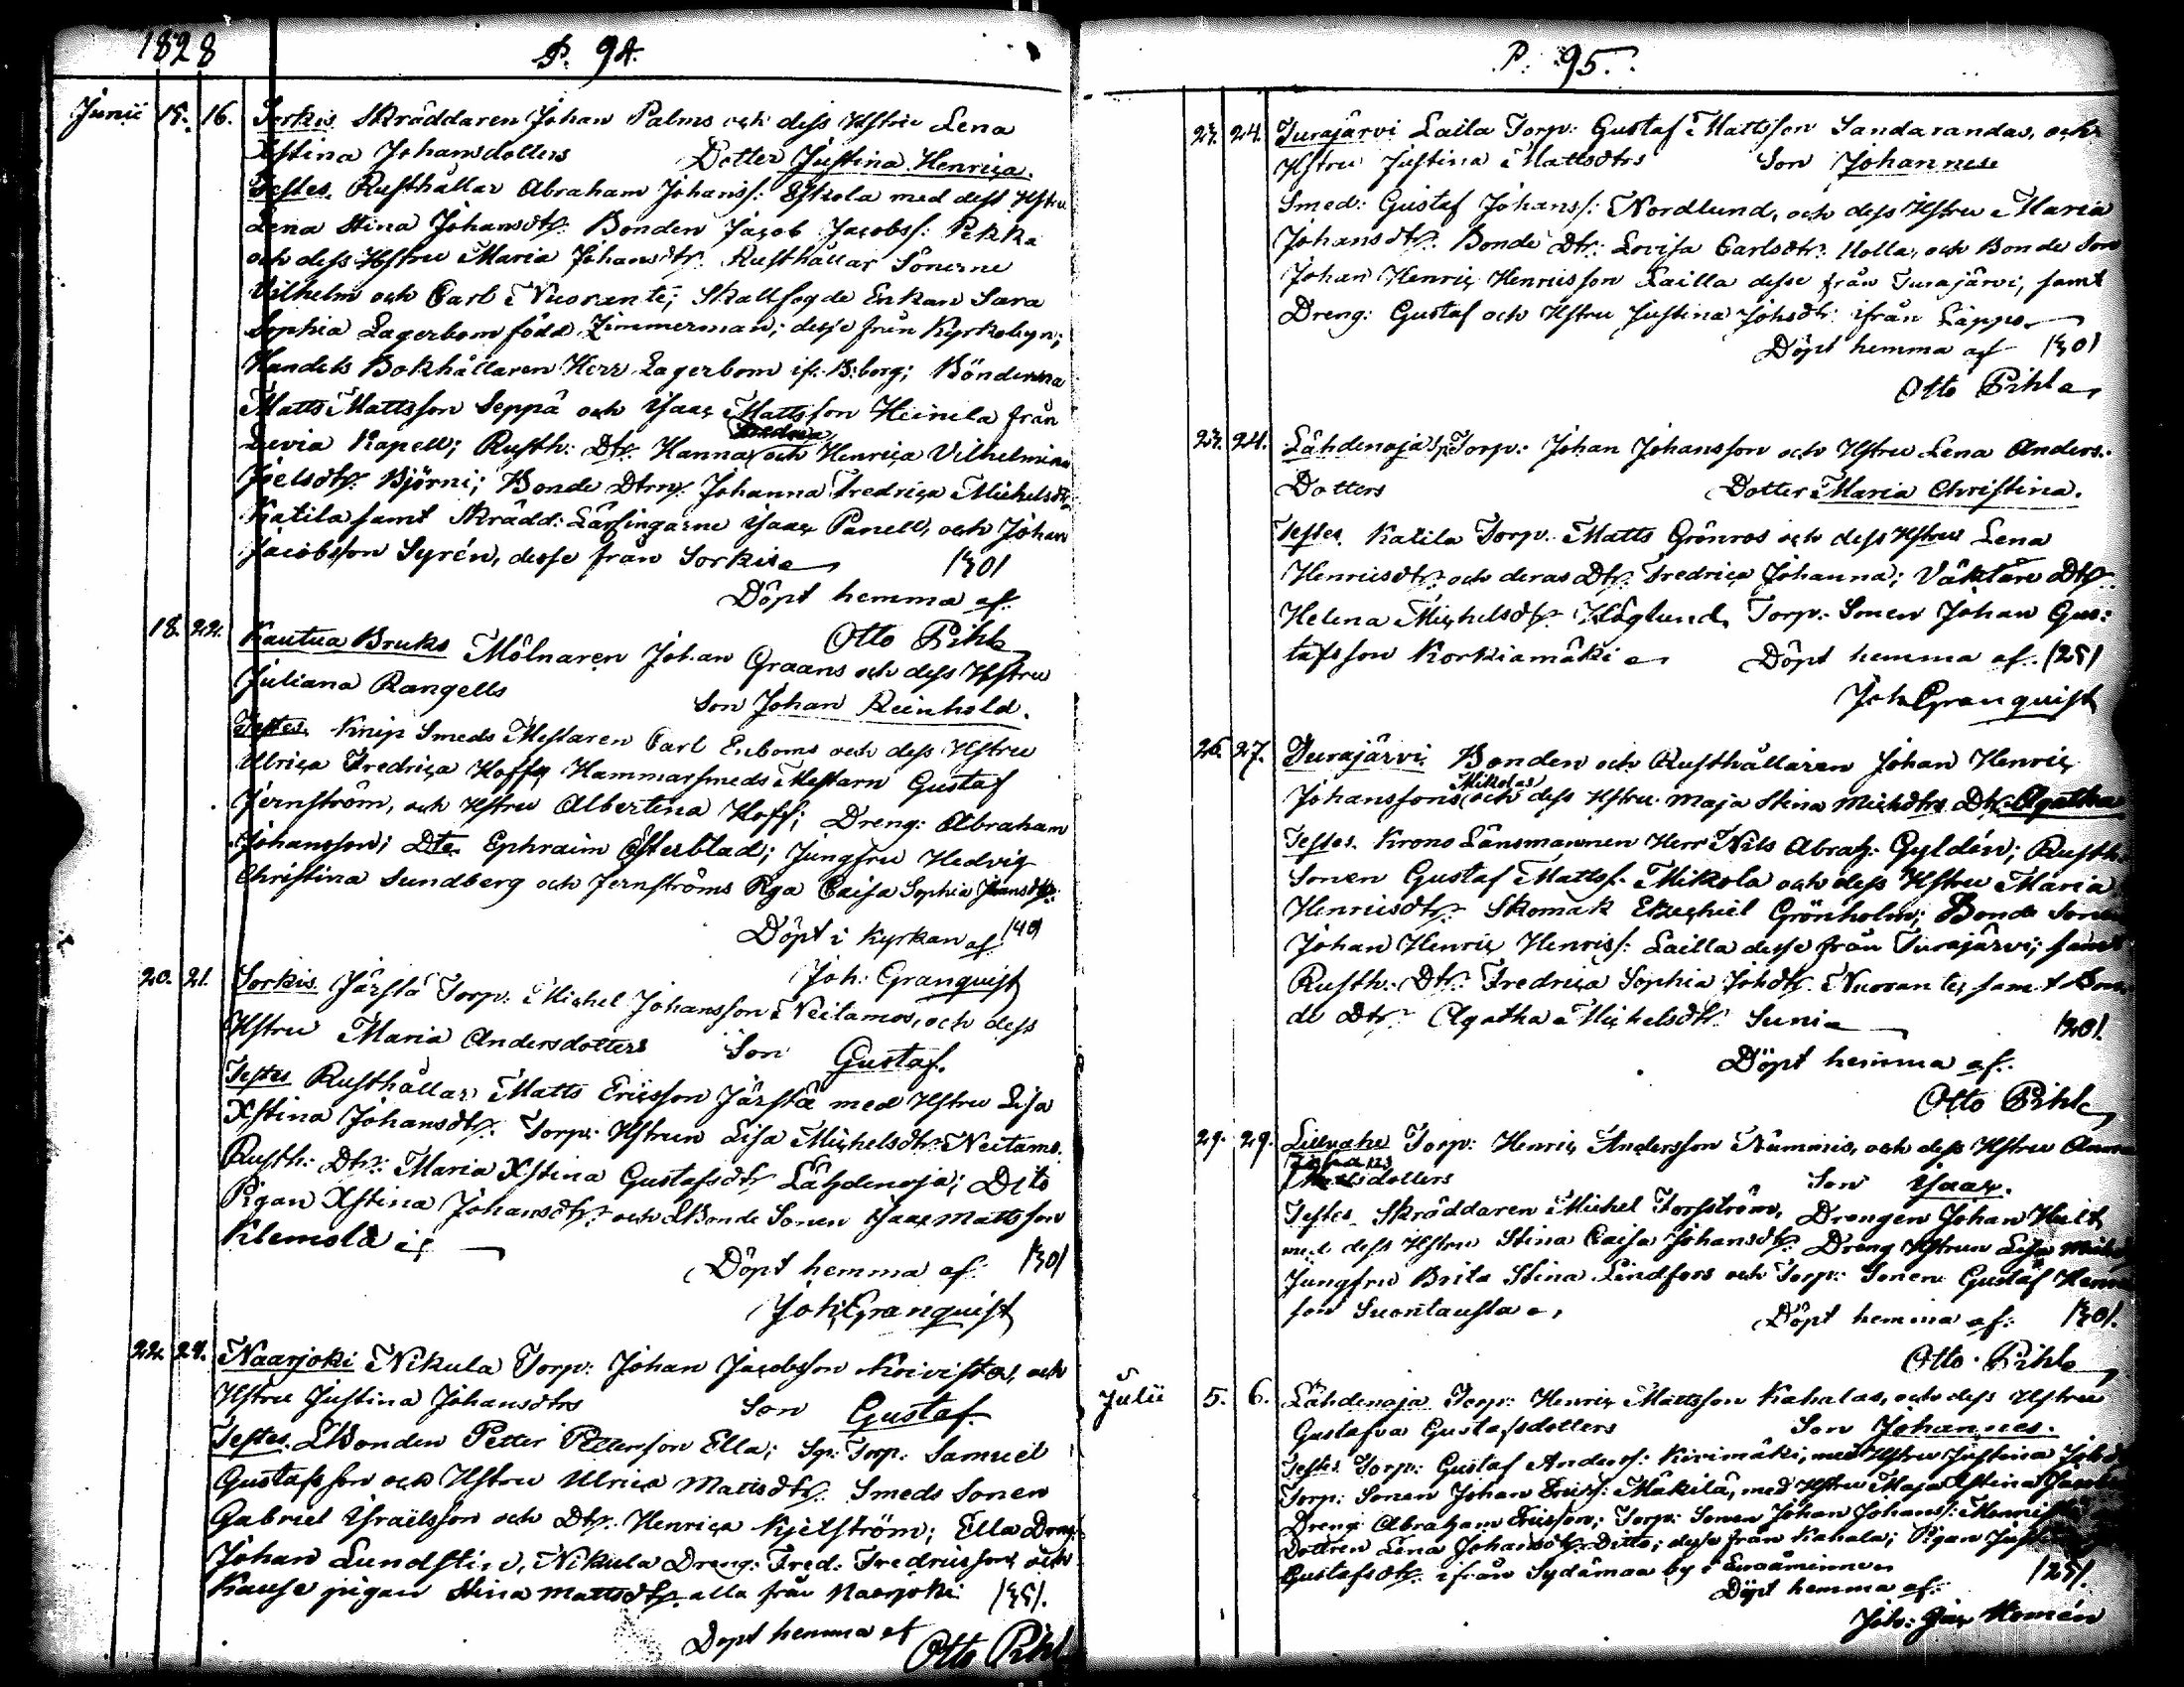 1828
P. 94.
Junii 15. 16. Sorkis Skräddaren Johan Palms och dess Hstru Lena
Xstina Johansdotters Dotter Justina Henrica.
Testes. Rusthållar Abraham Johanss: Eskola med dess Hstru
Lena Stina Johansdtr. Bonden Jacob Jacobss: Pekka
och dess Hstru Maria Johansdtr. Rusthållar Sönerne
Vilhelm och Carl Nuorante; Skallfogde Enkan Sara
Sophia Lagerbom född Zimmerman; desse från Kyrkobyn;
Handels Bokhållaren Herr Lagerbom if. B:borg; Bönderna
Matts Mattsson Seppä och Isaac Mattsson Heinila från
Luvia Kapell; Rusth: Dtr. Hanna och Henrica Vilhelmina
Joelsdtr. Björni; Bonde Dtrn. Johanna Fredrica Michelsdtr
Katila samt Skrädd: Lärlingarne Isaac Panell, och Johan
Jacobsson Syrén, desse från Sorkis 1301
Döpt hemma af.
Otto Pihl
18. 22. Kautua Bruks Mölnaren Johan Graans och dess Hstru
Juliana Rangells Son Johan Reinhold.
Testes. Knip Smeds Mestaren Carl Enboms och dess Hstru
Ulrica Fredrica Hoff, Hammarsmeds Mestarn Gustaf
Jernström, och Hstru Albertina Hoff; Dreng: Abraham
Johansson; Dto. Ephraim Österblad; Jungfru Hedvig
Christina Sundberg och Jernströms Pga Caisa Sophia Johansdtr.
Döpt i Kyrkan af 1401
Joh: Granquist
20. 21. Sorkis. Järstä Torp: Michel Johansson Neitamos, och dess
Hstru Maria Andersdotters Son Gustaf.
Testes Rusthållar Matts Ericsson Järstä med Hstru Lisa
Xstina Johansdtr. Torp: Hstrun Lisa Michelsdtr. Neitamo.
Rusth: Dtr: Maria Xstina Gustafsdtr Lähdenoja; Dito
Pigan Xstina Johansdtr. och Bonde Sonen Isaac Mattsson
Klemola
Döpt hemma af. 1301
Joh: Granquist
22. 24. Naarjoki Nikula Torp: Johan Jacobsson Koivistos, och
Hstru Justina Johansdtrs Son Gustaf.
Testes. Bonden Petter Pettersson Ella; Sp: Torp: Samuel
Gustafsson och Hstru Ulrica Mattsdtr. Smeds Sonen
Gabriel Israelsson och Dtr. Henrica Kjelström; Ella Dreng:
Johan Lundstén, Nikula Dreng: Fred: Fredricsson, och
Kause pigan Stina Mattsdtr. alla från Naarjoki 1351.
Döpt hemma af
Otto Pihl
P. 95.
23. 24. Turajärvi Laila Torp: Gustaf Mattsson Sandarandas, och
Hstru Justina Mattsdtrs Son Johannes
Smed: Gustaf Johanss: Nordlund, och dess Hstru Maria
Johansdtr. Bonde Dtr: Lovisa Carlsdtr: Holla, och Bonde Son
Johan Henric Henricsson Lailla desse från Turajärvi, samt
Dreng: Gustaf och Hstru Justina Johsdtr: ifrån Lappo
Döpt hemma af 1301
Otto Pihl
23. 24. Lähdenoja Sp:Torp: Johan Johansson och Hstru Lena Anders-
Dotters Dotter Maria Christina.
Testes. Katila Torp. Matts Grönros och dess Hstru Lena
Henricsdtr. och deras Dtr. Fredrica Johanna; Väktare Dtr.
Helena Michelsdtr. Höglund, Torp. Sonen Johan Gus:
tafsson Korkiamäki Döpt hemma af. 1251
Joh Granquist
26. 27. Turajärvi Bonden och Rusthållaren Johan Henric
Mikolas
Johanssons och dess Hstru Maja Stina Michdtrs Dtr. Agatha
Testes. Krono Länsmannen Herr Nils Abrah: Gyldén; Rusth:
Sonen Gustaf Mattss. Mikola och dess Hstru Maria
Henricsdtr. Skomak Ezechiel Grönholm; Bonde Sonen
Johan Henric Henricss: Lailla desse från Turajärvi; samt
Rusth. Dtr. Fredrica Sophia Johdtr. Nuorante, samt Bon
de Dtr. Agatha Michelsdtr. Suni 1201.
Döpt hemma af.
Otto Pihl
29. 29. Torp: Henric Andersson Nummis, och dess Hstru Anna
Johans
dotters Son Isaac.
Testes. Skräddaren Michel Forsström, Drengen Johan Hult
med dess Hstru Stina Caisa Johansdtr. Dreng Hstrun Lisa
Jungfru Brita Stina Lindfors och Torp: Sonen Gustaf
son Suontausta Döpt hemma af: 1301.
Otto Pihl
Julii 5. 6. Lähdenoja Torp: Henric Mattsson Kahalas, och dess Hstru
Gustafva Gustafsdotters Son Johannes.
Testes. Torp: Gustaf Anderss: Kivimäki, med Hstru Justina
Torp: Sonen Johan Ericss: Mäkilä, med Hstru Maja Xstina
Dreng Abraham Ericsson; Torp: Sonen Johan Johanss:
Dottren Lena Johansdtr. Ditto; desse från Kahala; Pigan
Gustafsdtr. ifrån Sydämaa by i Euraåminne
Döpt hemma af. 1251.
Joh: Homén